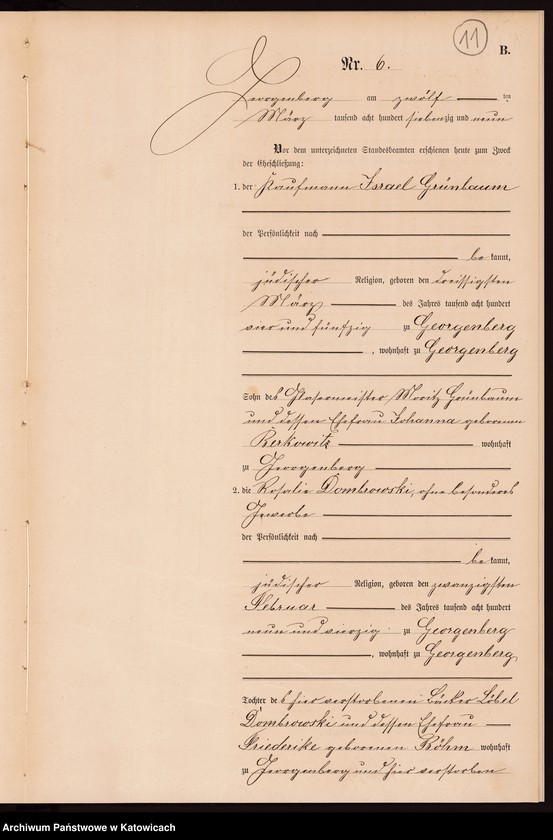 11
B.
Nr. 6.
Georgenberg am zwölf ten
März tausend acht hundert siebenzig und neun
Vor dem unterzeichneten Standesbeamten erschienen heute zum Zweck
der Eheschließung:
1. der Kaufmann Israel Grünbaum
der Persönlichkeit nach
be kannt,
jüdischer Religion, geboren den dreissigsten
März des Jahres tausend acht hundert
vier und fünfzig zu Georgenberg
, wohnhaft zu Georgenberg
Sohn des Glasermeister Moritz Grünbaum
und dessen Ehefrau Johanna geborenen
Berkowitz wohnhaft
zu Georgenberg
2. die Rosalie Dombrowski, ohne besonderes
Gewerbe
der Persönlichkeit nach
be kannt,
jüdischer Religion, geboren den zwanzigsten
Februar des Jahres tausend acht hundert
neun und vierzig zu Georgenberg
, wohnhaft zu Georgenberg
Tochter des hier verstorbenen Bäcker Löbel
Dombrowski und dessen Ehefrau
Friederike geborenen Böhm wohnhaft
zu Georgenberg und hier verstorben
Archiwum Państwowe w Katowicach